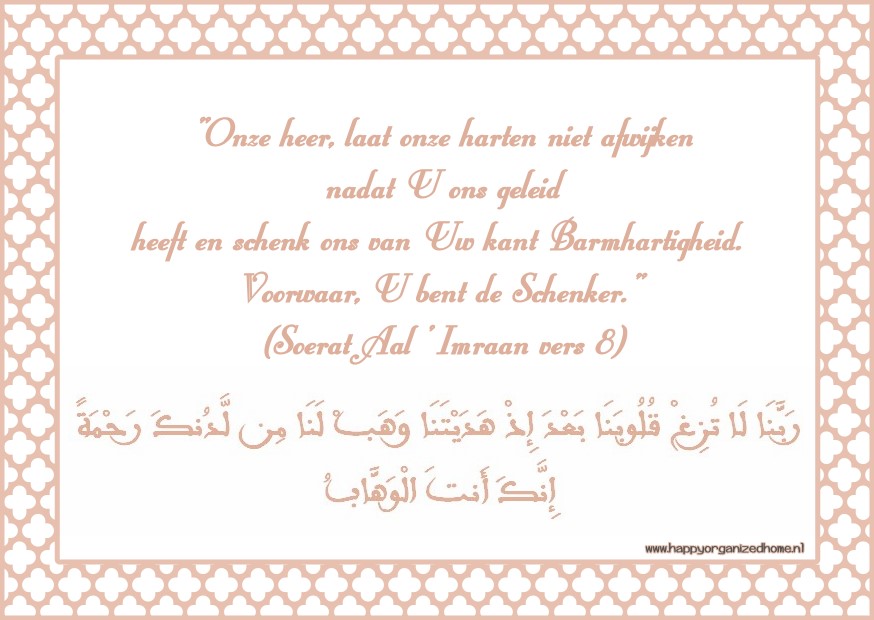 "Onze heer, laat onze harten niet afwijken
nadat U ons geleid
heeft en schenk ons van Uw kant Barmhartigheid.
Voorwaar, U bent de Schenker."
(Soerat Aal 'Imraan vers 8)
رَبَّنَا لَا تُزِغْ قُلُوبَنَا بَعْدَ إِذْ هَدَيْتَنَا وَهَبْ لَنَا مِن لَّدُنكَ رَحْمَةً
إِنَّكَ أَنتَ الْوَهَّابُ
www.happyorganizedhome.nl